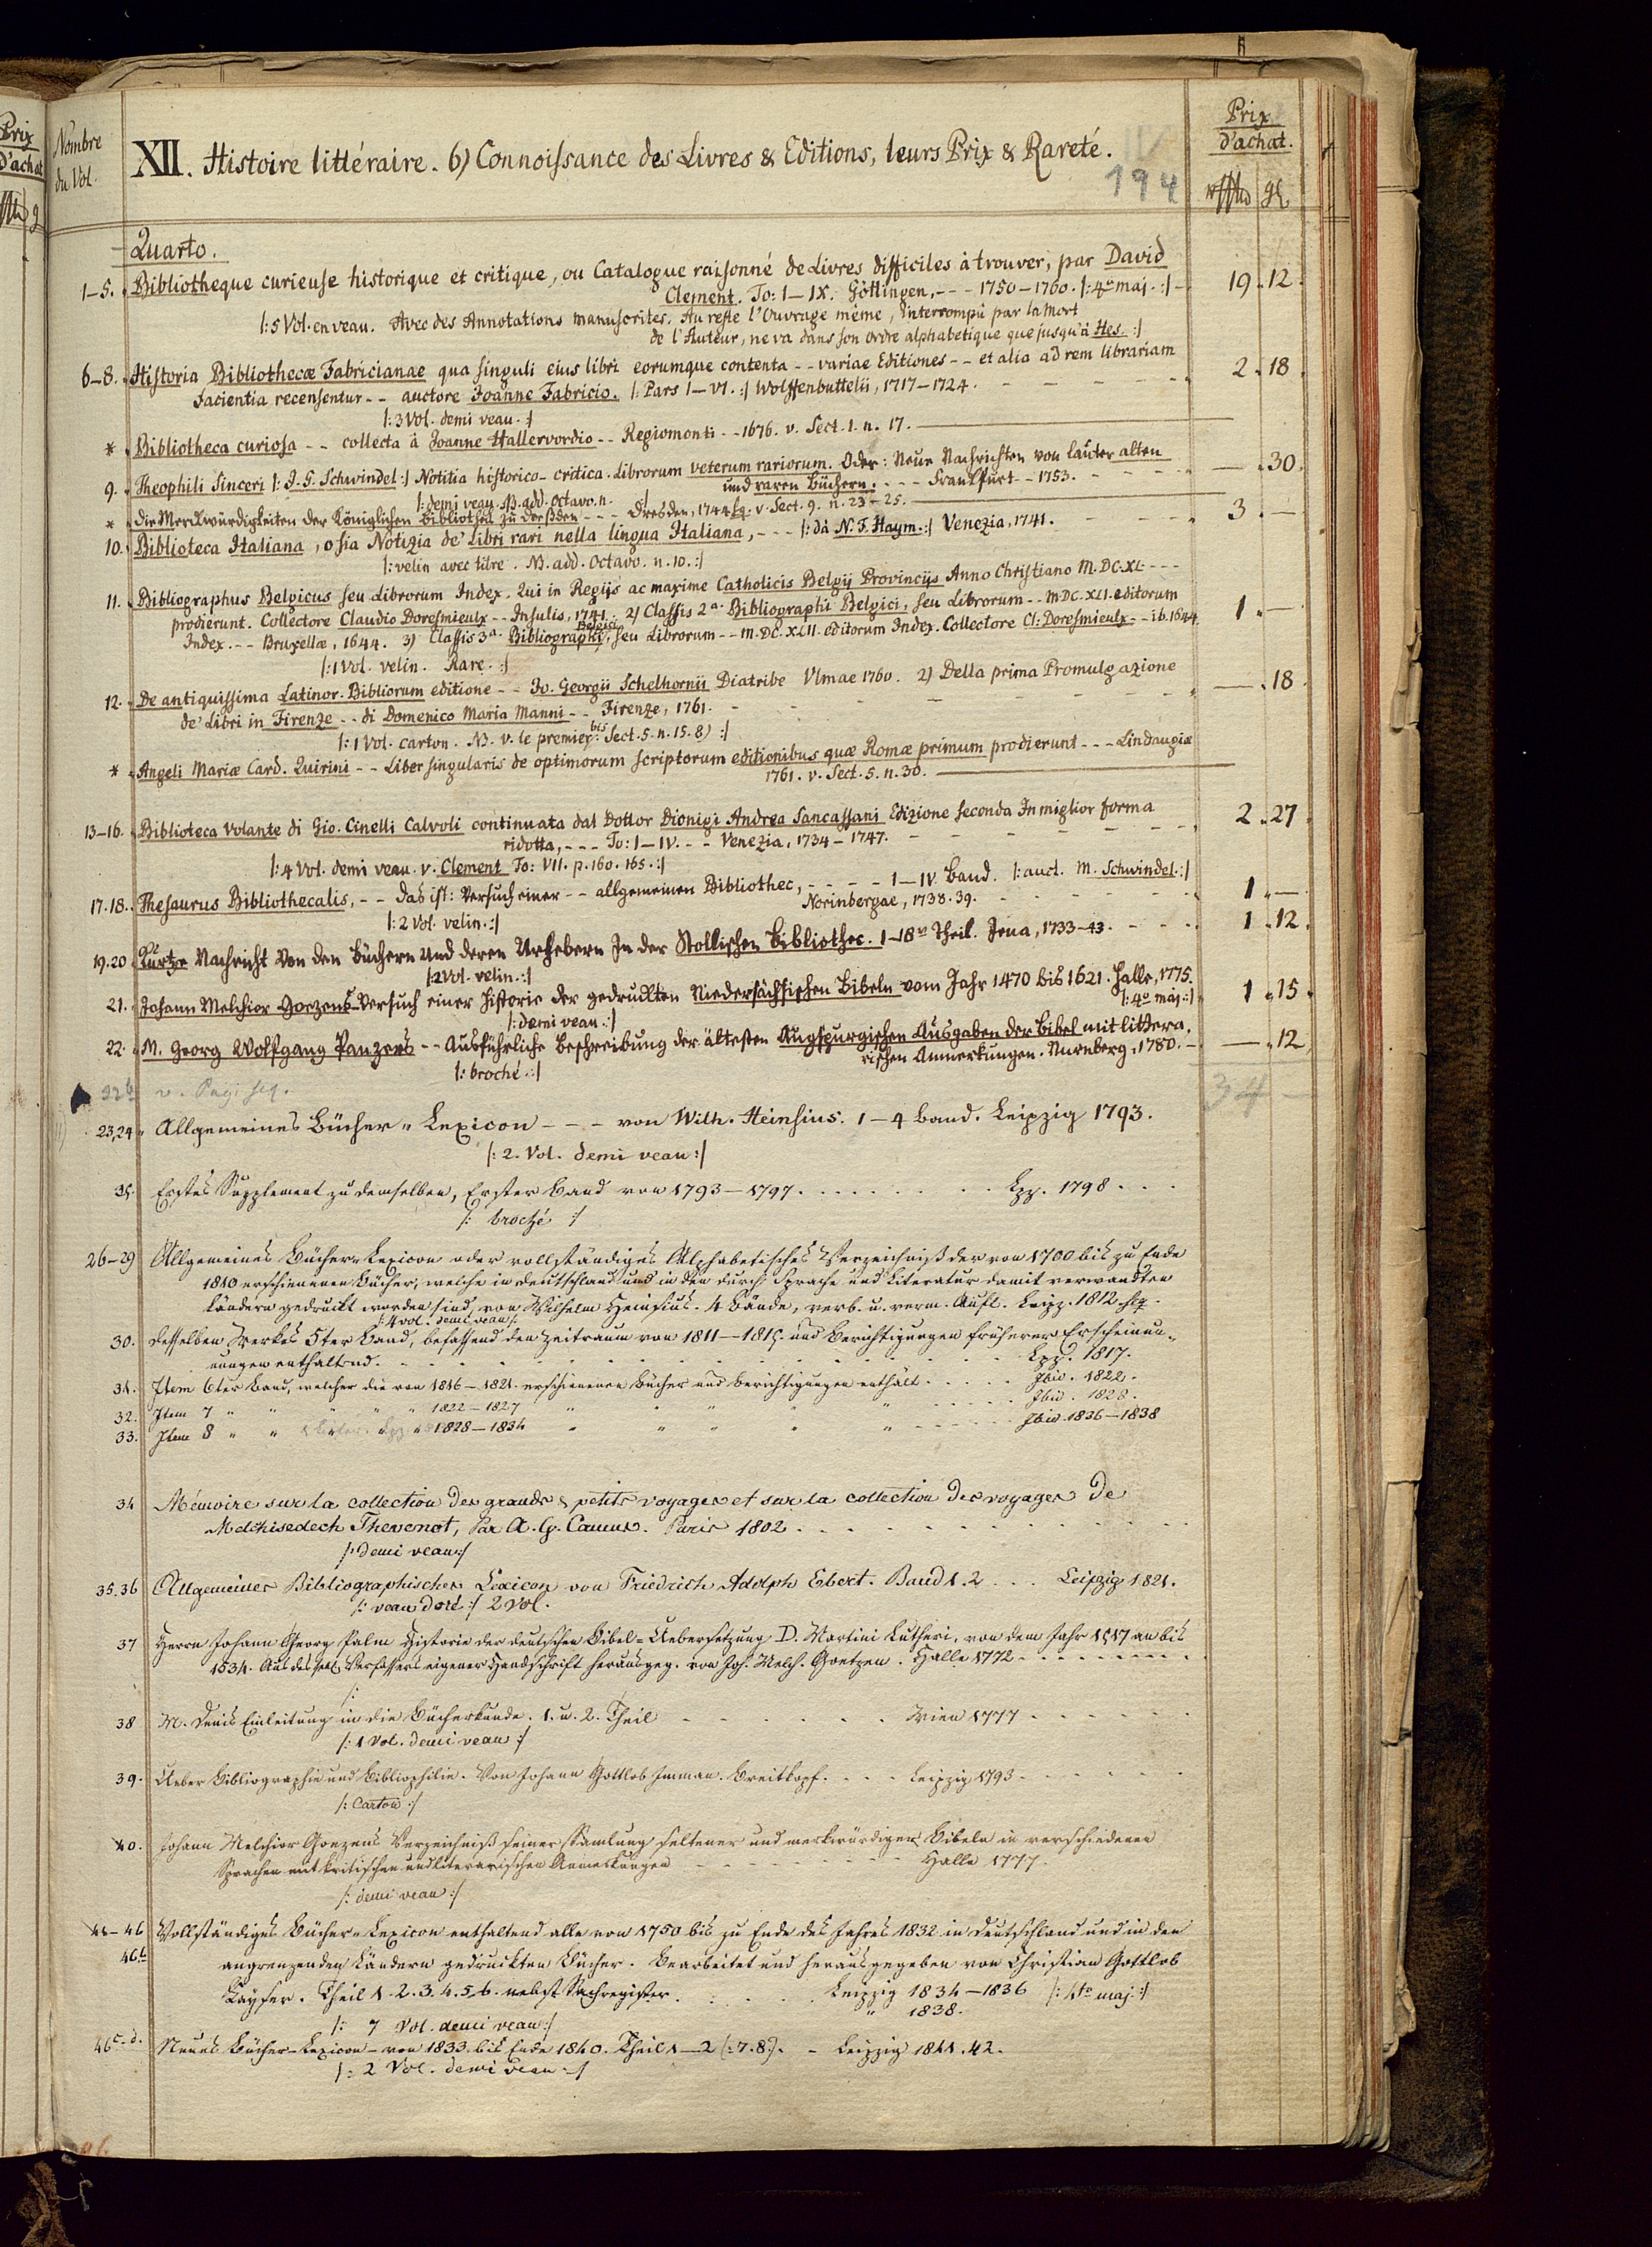 Prix
d'achat
Nombre
du Vol.
XII. Histoire littéraire. 6) Connoissance des Livres & Editions, leurs Prix & Rareté.
194
Prix
d'achat.
Quarto.
1–5. Bibliotheque curieuse historique et critique, ou Catalogue raisonné de Livres difficiles à trouver, par David
Clement. To: I–IX. Göttingen, - - - 1750–1760. |: 4to maj. :| 19. 12.
|: 5 Vol. en veau. Avec des Annotations manuscrites. Au reste l'Ouvrage même, interrompû par la mort
de l'Auteur, ne va dans son ordre alphabetique que jusqu'à Hes. :|
6–8. Historia Bibliothecæ Fabricianae qua singuli eius libri eorumque contenta - - variae Editiones - - et alia ad rem librariam
facientia recensentur - - auctore Joanne Fabricio. |: Pars I–VI. :| Wolffenbuttelii, 1717–1724. 2. 18.
|: 3 Vol. demi veau. :|
* Bibliotheca curiosa - - collecta à Joanne Hallervordio - - Regiomonti - - 1676. v. Sect. 1. n. 17.
9. Theophili Sinceri |: J. G. Schwindel :| Notitia historico-critica Librorum veterum rariorum. Oder: Neue Nachrichten von lauter alten
und raren Büchern. - - - Franckfurt - - 1753. — . 30.
|: demi veau. NB. add. octavo. n. :|
* Die Merckwürdigkeiten der Königlichen Bibliothek zu Dreßden - - - Dresden, 1744 sq. v. Sect. 9. n. 23–25.
10. Biblioteca Italiana, o sia Notizia de' Libri rari nella lingua Italiana, - - - |: da N. F. Haym. :| Venezia, 1741. 3. —
|: velin avec titre. NB. add. Octavo. n. 10. :|
11. Bibliographus Belgicus seu Librorum Index. Qui in Regijs ac maxime Catholicis Belgij Provinciis Anno Christiano M.DC.XL. - - -
prodierunt. Collectore Claudio Doresmieulx - - Insulis, 1741. 2) Classis 2a. Bibliographi Belgici, seu Librorum - - M.DC.XLI. editorum
Index. - - Bruxellæ, 1644. 3) Classis 3a. Bibliographi Belgici, seu Librorum - - M.DC.XLII. editorum Index. Collectore Cl: Doresmieulx - - ib. 1644. 1. —
|: 1 Vol. velin. Rare. :|
12. De antiquissima Latinor. Bibliorum editione - - Jo. Georgii Schelhornii Diatribe Vlmae 1760. 2) Della prima Promulgazione
de' Libri in Firenze - - di Domenico Maria Manni - - Firenze, 1761. — . 18.
|: 1 Vol. carton. NB. v. le premier bis Sect. 5. n. 15. 8) :|
* Angeli Mariæ Card. Quirini - - Liber singularis de optimorum scriptorum editionibus quæ Romæ primum prodierunt - - - Lindaugiæ
1761. v. Sect. 5. n. 30.
13–16. Biblioteca Volante di Gio. Cinelli Calvoli continuata dal Dottor Dionigi Andrea Sancassani Edizione seconda In miglior forma
ridotta, - - - To: I–IV. - - - Venezia, 1734–1747. 2. 27.
|: 4 Vol. demi veau. v. Clement To: VII. p. 160. 165. :|
17.18. Thesaurus Bibliothecalis, - - das ist: Versuch einer - - allgemeinen Bibliothec, - - - - I–IV. Band. |: auct. M. Schwindel. :|
Norinbergae, 1738. 39. 1. —
|: 2 Vol. velin. :|
19.20 Kurtze Nachricht von den Büchern und deren Urhebern In der Stollischen Bibliothec. 1–18r Theil. Jena, 1733–43. 1. 12.
|: 2 Vol. velin. :|
21. Johann Melchior Goezens Versuch einer Historie der gedruckten Niedersächsischen Bibeln vom Jahr 1470 bis 1621. Halle, 1775.
|: 4o maj. :| 1. 15.
|: demi veau. :|
22. M. Georg Wolfgang Panzers - - Ausführliche Beschreibung der ältesten Augspurgischen Ausgaben der Bibel mit littera-
rischen Anmerkungen. Nürnberg, 1780. — . 12.
|: broché. :|
22b v. Pag. seq. 34 —
23,24 Allgemeines Bücher-Lexicon - - - von Wilh. Heinsius. 1–4 Band. Leipzig 1793.
|: 2. Vol. demi veau :|
25. Erstes Supplement zu demselben, Erster Band von 1793–1797. . . . Lpz. 1798 . . .
|: broché :|
26–29 Allgemeines Bücher-Lexicon oder vollständiges Alphabetisches Verzeichniß der von 1700 bis zu Ende
1810 erschienenen Bücher, welche in Deutschland und in den durch Sprache und Literatur damit verwandten
Ländern gedruckt worden sind, von Wilhelm Heinsius. 4 Bände, verb. u. verm. Aufl. Leipz. 1812 flg.
|: 4 vol. demi veau :|
30. Desselben Werkes 5ter Band, befassend den Zeitraum von 1811–1815. und Berichtigungen früherer Erscheinun-
nungen enthaltend. Lpz. 1817.
31. Item 6ter Band, welcher die von 1816–1821. erschienenen Bücher und Berichtigungen enthält . . . Ibid. 1822.
32. Item 7 " " " " 1822–1827 " " " " Ibid. 1828.
33. Item 8 " " 1828–1834 " " " " Ibid. 1836–1838
34 Mémoire sur la collection des grands & petits voyages et sur la collection des voyages de
Melchisedech Thevenot, Par A. G. Camus. Paris 1802.
|: Demi veau :|
35.36 Allgemeines Bibliographisches Lexicon von Friedrich Adolph Ebert. Band 1.2 . . . Leipzig 1821.
|: veau doré :| 2 Vol.
37 Herrn Johann Georg Palm Historie der deutschen Bibel-Uebersetzung D. Martini Lutheri, von dem Jahr 1517 an bis
1534. Aus des sel. Verfassers eigener Handschrift herausgeg. von Joh. Melch. Goetzen. Halle 1772
|:
38 M. Denis Einleitung in die Bücherkunde. 1. u. 2. Theil - - - Wien 1777
|: 1 Vol. demi veau :|
39. Ueber Bibliographie und Bibliophilie. Von Johann Gottlob Imman. Breitkopf. . . . Leipzig 1793
|: Carton :|
40. Johann Melchior Goezens Verzeichniß seiner Samlung seltener und merkwürdigen Bibeln in verschiedenen
Sprachen mit kritischen und literarischen Anmerkungen Halle 1777.
|: demi veau :|
41–46 Vollständiges Bücher-Lexicon enthaltend alle von 1750 bis zu Ende des Jahres 1832 in Deutschland und in den
46b angrenzenden Ländern gedruckten Bücher. Bearbeitet und herausgegeben von Christian Gottlob
Kayser. Theil 1. 2. 3. 4. 5. 6. nebst Sachregister. Leipzig 1834–1836 |: 4to maj. :|
|: 7 Vol. demi veau :| " 1838.
46c-d. Neues Bücher-Lexicon - von 1833. bis Ende 1840. Theil 1–2 (: 7. 8 :). - Leipzig 1841. 42.
|: 2 Vol. demi veau :|